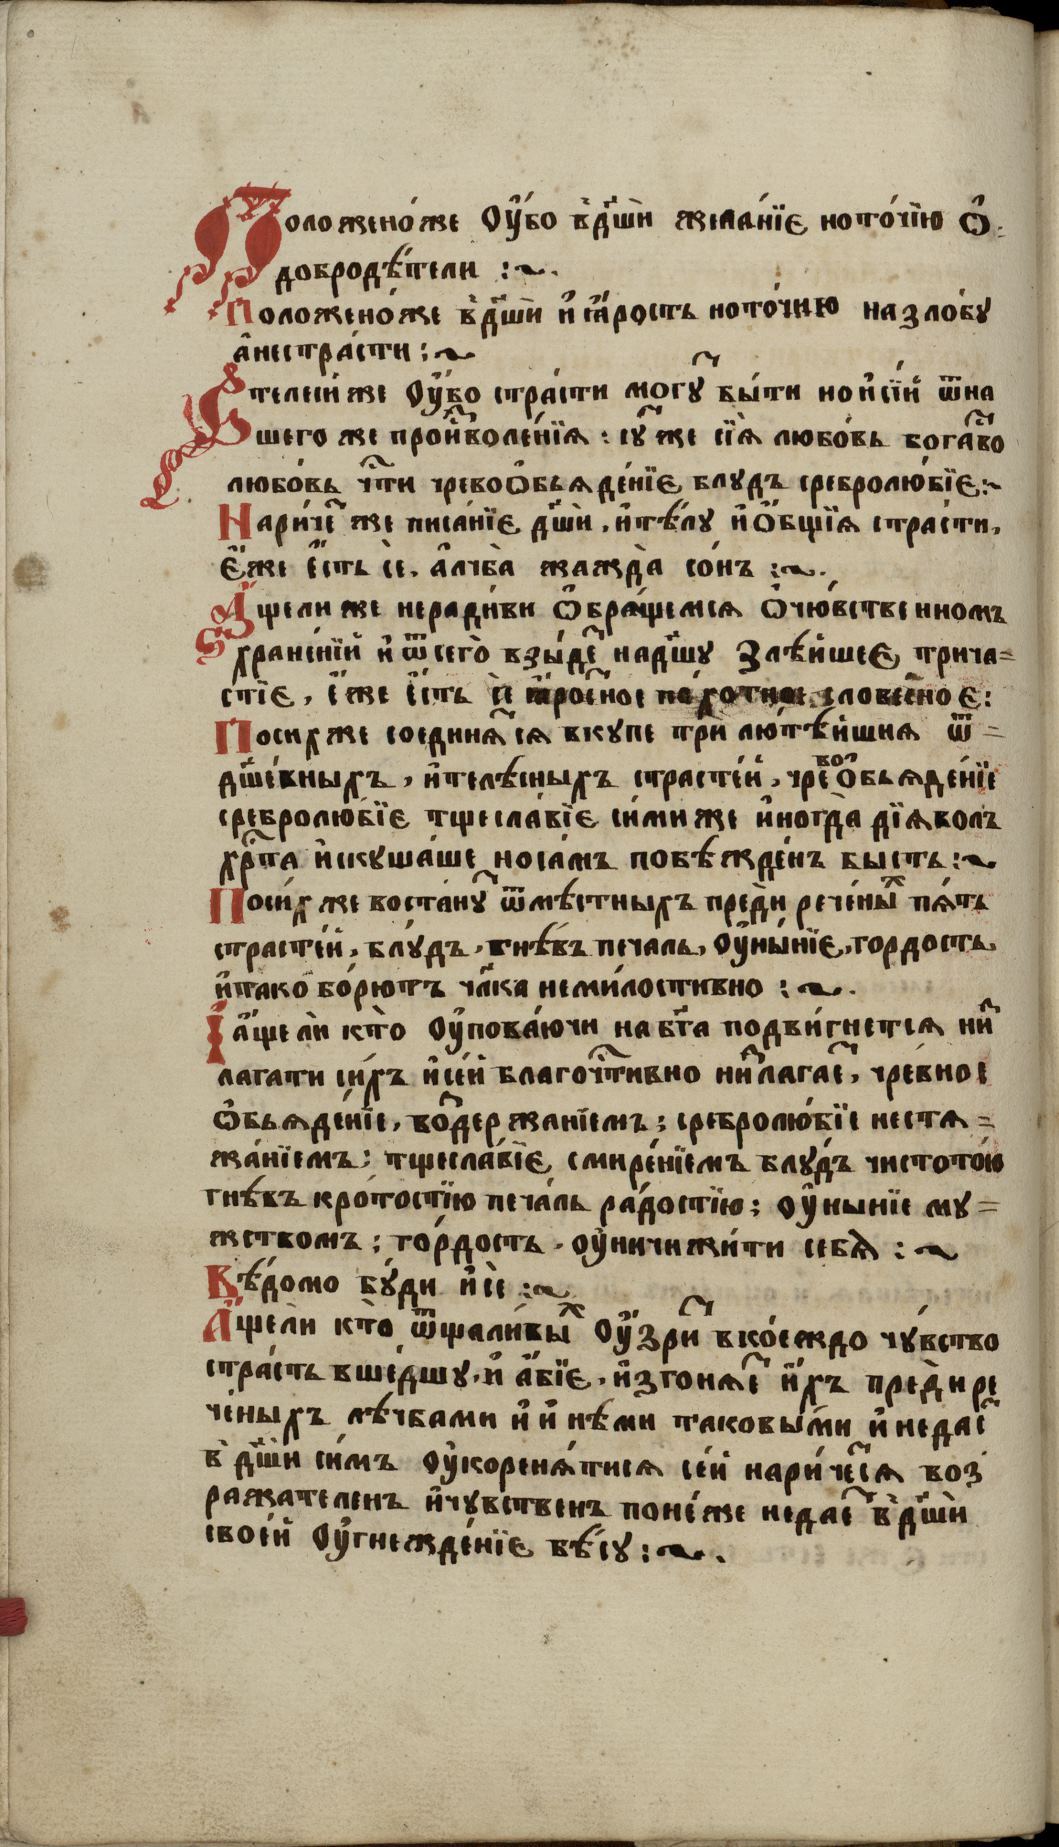 Положено́же Оу҆́бо в̾дш҃и жела́нїє ното́чїю ѻ҆
добродѣ́тели :~.
Положено́же в̾дш҃и и҆ ꙗ҆́рость ното́чию на зло́бу
а҆нестра́сти :~
Ѿтелеси́ же Оу҆́бо стра́сти могу҃ бы́ти но и҆сїи̑ ѿна
шего же прои҆зволе́нїя : су҃ же сїя̀ любо́вь бога҃тво
любо́вь чт҃и чревоѻбьяде́нїє блудъ сребролю́бїє:~
Нари́че҃ же писа́нїє дш҃и, и҆тѣ́лу и҆ ѻ҆́бщїя стра́сти,
є҆́же є҆́сть сѐ. а҆лчба̀ жажда̀ со́нъ :~.
А҆́щели же неради́ви ѻ҆бра́щемся ѻ҆чю́вственномъ
хране́нїи и҆ ѿ сего̀ взы́де҃ на дш҃у злѣ́йшеє прича=
стїє, є҆́же є҆́сть сѐ ꙗ҆́ростное похотное словесноє:
Посихже соединя҃ся вкупе трѝ лютѣ́йшия ѿ =
дш҃е́вныхъ, и҆телѣ́сныхъ страсте́й, чревоѻбьяде́нїе
сребролюбїє тщесла́вїє си́ми же и҆ногда̀ дїяволъ
хр҃та и҆скуша́ше но са́мъ побѣжде́нъ бысть:~
Поси́х же воста́ну҃ ѿмѣ́стныхъ преди рече́ны҃х пя́ть
страсте́й, блу́дъ, гнѣ́въ печаль, Оу҆ны́нїє, гордость,
и҆тако бо́рютъ чл҃ка неми́лостивно :~.
І а҆́щели кто̀ Оу҆пова́ючи на бг҃а подви́гнется ни҃
лагати си́хъ и҆ се́й благоч҃тивно ни҃лагае҃, чре́вное
ѻ҆бьяде́нїе, во҃держанїемъ; сребролю́бїе нестя=
жа́нїемъ; тщесла́вїє, смире́нїемъ блу́дъ чистото́ю
гнѣвъ кро́тостїю печа́ль ра́достїю; Оу҆ныниїе му=
жствомъ; го́рдость, Оу҆ничижи́ти себѧ̀ :~
Вѣ́домо бу́ди и҆ се :~
А҆́щели кто̀ ѿщали́вы҃х Оу҆зри҃ вко́еждо чу́вство
стра́сть вше́дшу, и҆ а҆́бїє, и҆згоня́е҃ и҆́хъ предире
че́ныхъ лѣчбами и҆ и҆нѣми таковы́ми и҆ недае҃
в̾ дш҃и си́мъ Оу҆кореня́тися се́й нари́че҃ся воз
ражателенъ и҆чувственъ поне́же недае҃ в̾дш҃и
свое́й Оу҆гнежде́нїє бѣ́су :~.